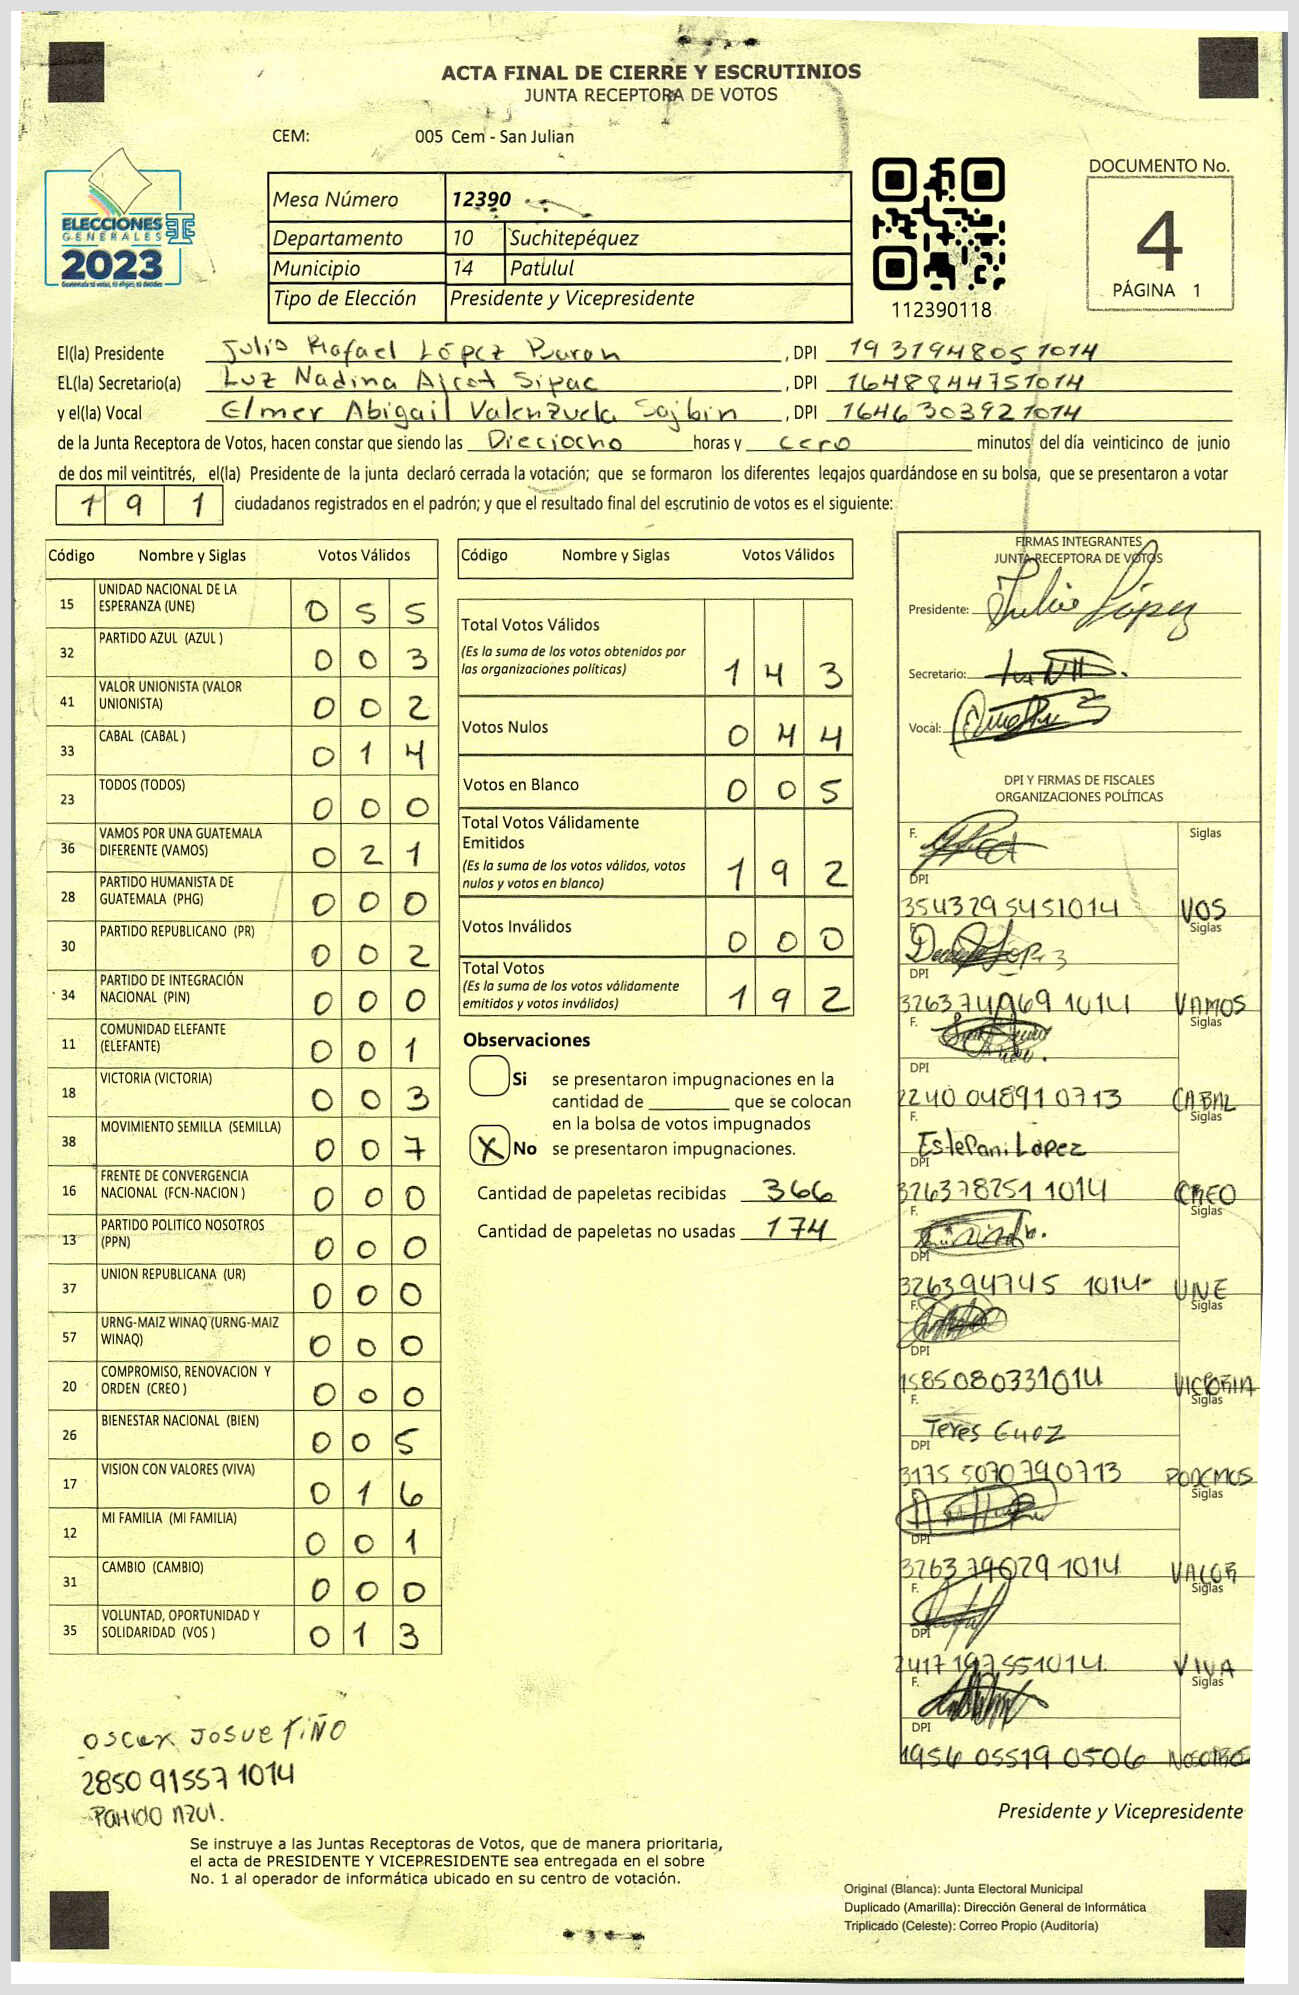 ACTA FINAL DE CIERRE Y ESCRUTINIOS
JUNTA RECEPTORA DE VOTOS
CEM: 005 Cem - San Julian
ELECCIONES
GENERALES
2023
Mesa Número 12390
Departamento 10 Suchitepéquez
Municipio 14 Patulul
Tipo de Elección Presidente y Vicepresidente
112390118
DOCUMENTO No.
4
PÁGINA 1
El(la) Presidente Julio Rafael López , DPI 1931948051014
EL(la) Secretario(a) Luz Nadina Ajcot Sipac , DPI 1648844751014
y el(la) Vocal Elmer Abigail Valenzuela Sajbin , DPI 1646303921014
de la Junta Receptora de Votos, hacen constar que siendo las Dieciocho horas y cero minutos del día veinticinco de junio
de dos mil veintitrés, el(la) Presidente de la junta declaró cerrada la votación; que se formaron los diferentes legajos quardándose en su bolsa, que se presentaron a votar
1 9 1 ciudadanos registrados en el padrón; y que el resultado final del escrutinio de votos es el siguiente:
Código Nombre y Siglas Votos Válidos
15 UNIDAD NACIONAL DE LA
ESPERANZA (UNE) 0 5 5
32 PARTIDO AZUL (AZUL ) 0 0 3
41 VALOR UNIONISTA (VALOR
UNIONISTA) 0 0 2
33 CABAL (CABAL ) 0 1 4
23 TODOS (TODOS) 0 0 0
36 VAMOS POR UNA GUATEMALA
DIFERENTE (VAMOS) 0 2 1
28 PARTIDO HUMANISTA DE
GUATEMALA (PHG) 0 0 0
30 PARTIDO REPUBLICANO (PR) 0 0 2
34 PARTIDO DE INTEGRACIÓN
NACIONAL (PIN) 0 0 0
11 COMUNIDAD ELEFANTE
(ELEFANTE) 0 0 1
18 VICTORIA (VICTORIA) 0 0 3
38 MOVIMIENTO SEMILLA (SEMILLA) 0 0 7
16 FRENTE DE CONVERGENCIA
NACIONAL (FCN-NACION ) 0 0 0
13 PARTIDO POLITICO NOSOTROS
(PPN) 0 0 0
37 UNION REPUBLICANA (UR) 0 0 0
57 URNG-MAIZ WINAQ (URNG-MAIZ
WINAQ) 0 0 0
20 COMPROMISO, RENOVACION Y
ORDEN (CREO ) 0 0 0
26 BIENESTAR NACIONAL (BIEN) 0 0 5
17 VISION CON VALORES (VIVA) 0 1 6
12 MI FAMILIA (MI FAMILIA) 0 0 1
31 CAMBIO (CAMBIO) 0 0 0
35 VOLUNTAD, OPORTUNIDAD Y
SOLIDARIDAD (VOS ) 0 1 3
Código Nombre y Siglas Votos Válidos
Total Votos Válidos
(Es la suma de los votos obtenidos por
las organizaciones políticas) 1 4 3
Votos Nulos 0 4 4
Votos en Blanco 0 0 5
Total Votos Válidamente
Emitidos
(Es la suma de los votos válidos, votos
nulos y votos en blanco) 1 9 2
Votos Inválidos 0 0 0
Total Votos
(Es la suma de los votos válidamente
emitidos y votos inválidos) 1 9 2
Observaciones
Si se presentaron impugnaciones en la
cantidad de ________ que se colocan
en la bolsa de votos impugnados
X No se presentaron impugnaciones.
Cantidad de papeletas recibidas 366
Cantidad de papeletas no usadas 174
FIRMAS INTEGRANTES
JUNTA RECEPTORA DE VOTOS
Presidente: Julio López
Secretario:
Vocal:
DPI Y FIRMAS DE FISCALES
ORGANIZACIONES POLÍTICAS
F. Siglas
DPI
3543295451014 VOS
F. Siglas
DPI
3263749691014 VAMOS
F. Siglas
DPI
2240048910713 CABAL
F. Estefani López Siglas
DPI
3263782511014 CREO
F. Siglas
DPI
326394745 1014 UNE
F. Siglas
DPI
1585080331014 VICTORIA
F. Siglas
DPI
3175507079 0713 PODEMOS
F. Siglas
DPI
3263796291014 VALOR
F. Siglas
DPI
2417197551014 VIVA
F. Siglas
DPI
1956 05519 0506 NOSOTROS
OSCAR JOSUE TIÑO
2850 91557 1014
Partido Azul.
Presidente y Vicepresidente
Se instruye a las Juntas Receptoras de Votos, que de manera prioritaria,
el acta de PRESIDENTE Y VICEPRESIDENTE sea entregada en el sobre
No. 1 al operador de informática ubicado en su centro de votación.
Original (Blanca): Junta Electoral Municipal
Duplicado (Amarilla): Dirección General de Informática
Triplicado (Celeste): Correo Propio (Auditoría)